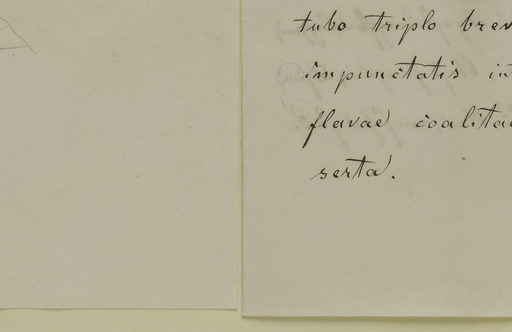 tubo triplo brev
impunctatis in
flavae coalitae
serta.